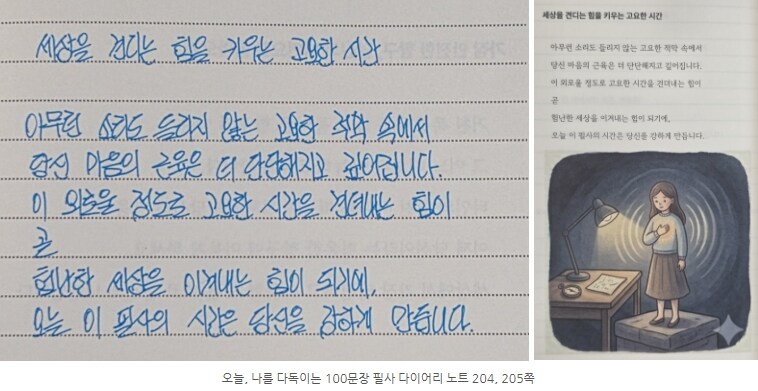 세상을 견디는 힘을 키우는 고요한 시간
아무런 소리도 들리지 않는 고요한 적막 속에서
당신 마음의 근육은 더 단단해지고 깊어집니다.
이 외로울 정도로 고요한 시간을 견뎌내는 힘이
곧
험난한 세상을 이겨내는 힘이 되기에,
오늘 이 필사의 시간은 당신을 강하게 만듭니다.
세상을 견디는 힘을 키우는 고요한 시간
아무런 소리도 들리지 않는 고요한 적막 속에서
당신 마음의 근육은 더 단단해지고 깊어집니다.
이 외로울 정도로 고요한 시간을 견뎌내는 힘이
곧
험난한 세상을 이겨내는 힘이 되기에,
오늘 이 필사의 시간은 당신을 강하게 만듭니다.
오늘, 나를 다독이는 100문장 필사 다이어리 노트 204, 205쪽